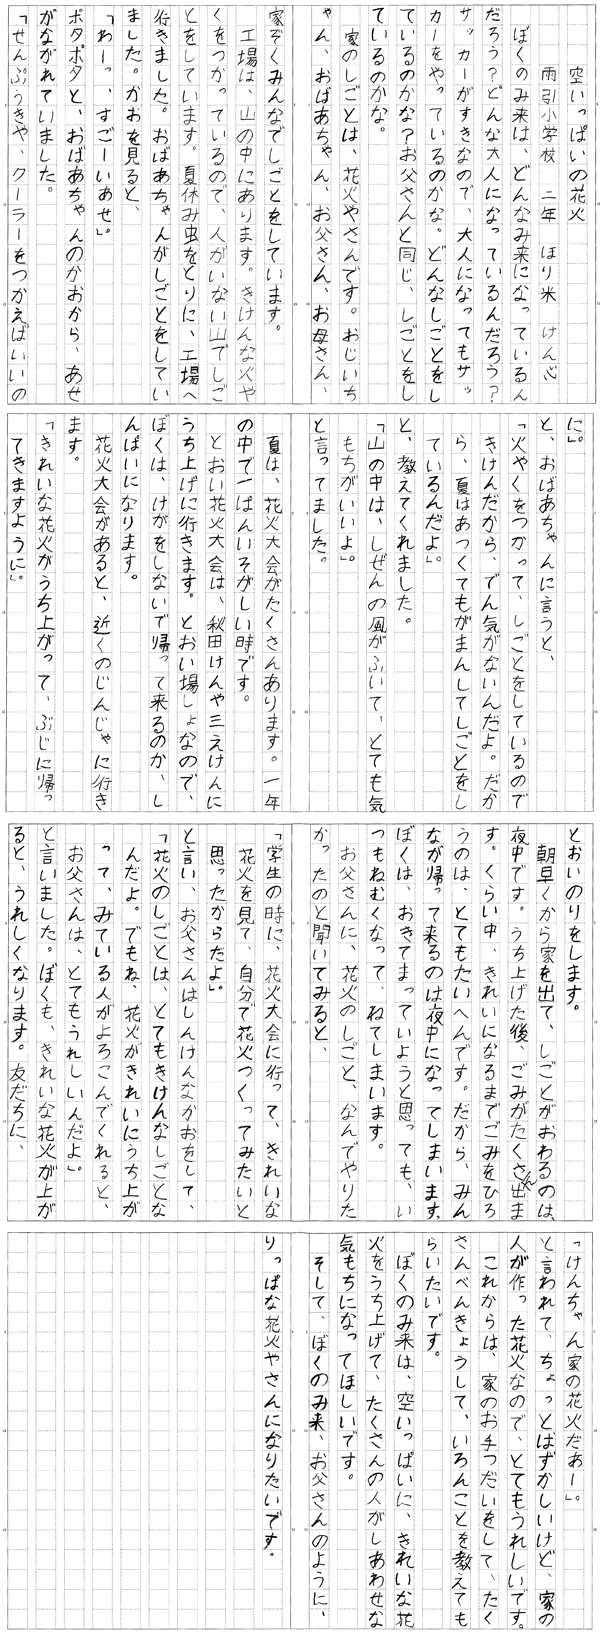 空いっぱいの花火
雨引小学校　二年　ほり米　けん心
ぼくのみ来は、どんなみ来になっているん
だろう？どんな大人になっているんだろう？
サッカーがすきなので、大人になってもサッ
カーをやっているのかな。どんなしごとをし
ているのかな？お父さんと同じ、しごとをし
ているのかな。
家のしごとは、花火やさんです。おじいち
ゃん、おばあちゃん、お父さん、お母さん、
家ぞくみんなでしごとをしています。
工場は、山の中にあります。きけんな火や
くをつかっているので、人がいない山でしご
とをしています。夏休み虫をとりに、工場へ
行きました。おばあちゃんがしごとをしてい
ました。かおを見ると、
「わーっ、すごーいあせ」。
ポタポタと、おばあちゃんのかおから、あせ
がながれていました。
「せんぷうきや、クーラーをつかえばいいの
に」。
と、おばあちゃんに言うと、
「火やくをつかって、しごとをしているので
きけんだから、でん気がないんだよ。だか
ら、夏はあつくてもがまんしてしごとをし
ているんだよ」。
と、教えてくれました。
「山の中は、しぜんの風がふいて、とても気
もちがいいよ」。
と言ってました。
夏は、花火大会がたくさんあります。一年
の中で一ばんいそがしい時です。
とおい花火大会は、秋田けんや三えけんに
うち上げに行きます。とおい場しょなので、
ぼくは、けがをしないで帰って来るのか、し
んぱいになります。
花火大会があると、近くのじんじゃに行き
ます。
「きれいな花火がうち上がって、ぶじに帰っ
てきますように」。
とおいのりをします。
朝早くから家を出て、しごとがおわるのは、
夜中です。うち上げた後、ごみがたくさん出ま
す。くらい中、きれいになるまでごみをひろ
うのは、とてもたいへんです。だから、みん
なが帰って来るのは夜中になってしまいます。
ぼくは、おきてまっていようと思っても、い
つもねむくなって、ねてしまいます。
お父さんに、花火のしごと、なんでやりた
かったのと聞いてみると、
「学生の時に、花火大会に行って、きれいな
花火を見て、自分で花火つくってみたいと
思ったからだよ」。
と言い、お父さんはしんけんなかおをして、
「花火のしごとは、とてもきけんなしごとな
んだよ。でもね、花火がきれいにうち上が
って、みている人がよろこんでくれると、
お父さんは、とてもうれしいんだよ」。
と言いました。ぼくも、きれいな花火が上が
ると、うれしくなります。友だちに、
「けんちゃん家の花火だあー」。
と言われて、ちょっとはずかしいけど、家の
人が作った花火なので、とてもうれしいです。
これからは、家のお手つだいをして、たく
さんべんきょうして、いろんことを教えても
らいたいです。
ぼくのみ来は、空いっぱいに、きれいな花
火をうち上げて、たくさんの人がしあわせな
気もちになってほしいです。
そして、ぼくのみ来、お父さんのように、
りっぱな花火やさんになりたいです。